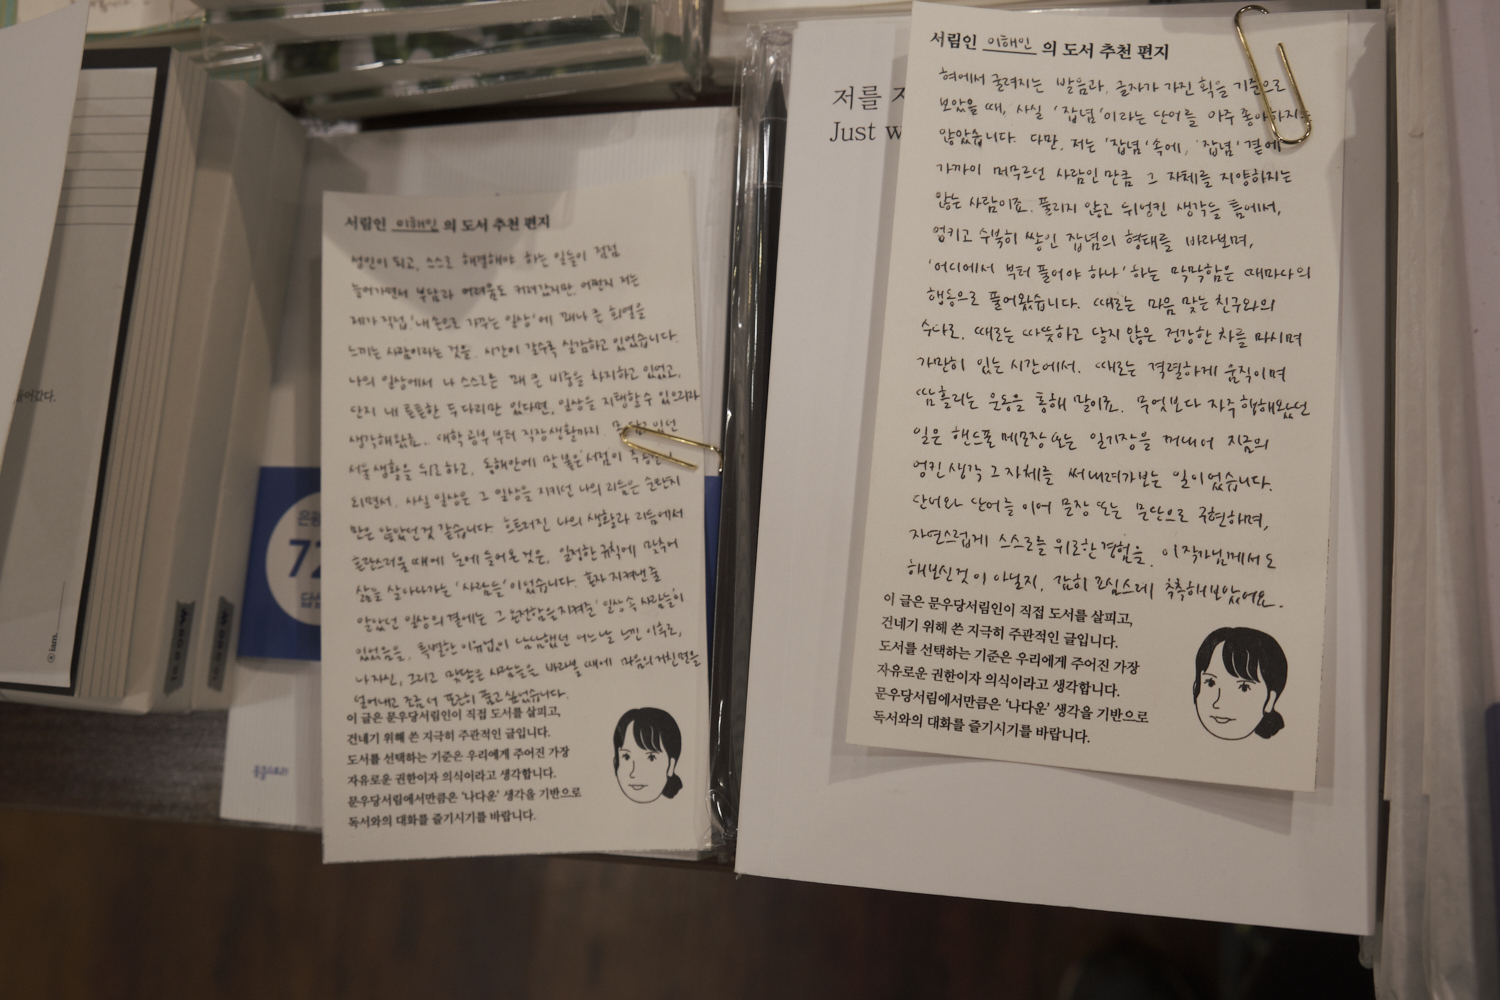 서림인 이해인 의 도서 추천 편지
성인이 되고, 스스로 해결해야 하는 일들이 점점
늘어가면서 부담과 어려움도 커져갔지만 어쩐지 저는
제가 직접 '내 손으로 가꾸는 일상'에 꽤나 큰 희열을
느끼는 사람이라는 것을, 시간이 갈수록 실감하고 있었습니다.
나의 일상에서 나 스스로는 꽤 큰 비중을 차지하고 있었고,
단지 내 튼튼한 두 다리만 있다면, 일상을 지탱할 수 있으리라
생각해왔죠.. 대학 공부부터 직장생활까지.
서울 생활을 위로하고, 동해안에 맞붙은 서점이
되면서, 사실 일상은 그 일상을 지키던 나의 리듬은 순탄치
만은 않았던 것 같습니다. 흐트러진 나의 생활과 리듬에서
혼란스러울 때에 눈에 들어온 것은, 일정한 규칙에 맞추어
삶을 살아나가는 '사람들'이었습니다. 혼자 지켜낸 줄
알았던 일상의 곁에는 그 온전함을 지켜준 '일상 속 사람들'이
있었음을, 특별한 이유없이 냠냠했던 어느 날 느낀 이후로,
나 자신, 그리고 맞닿은 사람들을 바라볼 때에 마음의 거친 면을
덜어내고 조금 더 푸근히 품고 싶었습니다.
이 글은 문우당서림인이 직접 도서를 살피고,
건네기 위해 쓴 지극히 주관적인 글입니다.
도서를 선택하는 기준은 우리에게 주어진 가장
자유로운 권한이자 의식이라고 생각합니다.
문우당서림에서만큼은 '나다운' 생각을 기반으로
독서와의 대화를 즐기시기를 바랍니다.
저를
Just w
서림인 이해인 의 도서 추천 편지
혀에서 굴려지는 발음과, 글자가 가진 획을 기준으로
보았을 때, 사실 '잡념'이라는 단어를 아주 좋아하지는
않았습니다. 다만, 저는 '잡념' 속에, '잡념' 곁에
가까이 머무르던 사람인 만큼 그 자체를 지양하지는
않는 사람이죠. 풀리지 않고 뒤엉킨 생각들 틈에서,
엉키고 수북히 쌓인 잡념의 형태를 바라보며,
'어디에서 부터 풀어야 하나' 하는 막막함은 때마다의
행동으로 풀어왔습니다. 때로는 마음 맞는 친구와의
수다로, 때로는 따뜻하고 달지 않은 건강한 차를 마시며
가만히 있는 시간에서. 때로는 격렬하게 움직이며
땀흘리는 운동을 통해 말이죠. 무엇보다 자주 행해왔던
일은 핸드폰 메모장 또는 일기장을 꺼내어 지금의
엉킨 생각 그 자체를 써내려가보는 일이었습니다.
단어와 단어를 이어 문장 또는 문단으로 구현하며,
자연스럽게 스스로를 위로한 경험을, 이 작가님께서도
해보신 것이 아닐지, 감히 조심스레 추측해보았어요.
이 글은 문우당서림인이 직접 도서를 살피고,
건네기 위해 쓴 지극히 주관적인 글입니다.
도서를 선택하는 기준은 우리에게 주어진 가장
자유로운 권한이자 의식이라고 생각합니다.
문우당서림에서만큼은 '나다운' 생각을 기반으로
독서와의 대화를 즐기시기를 바랍니다.
72